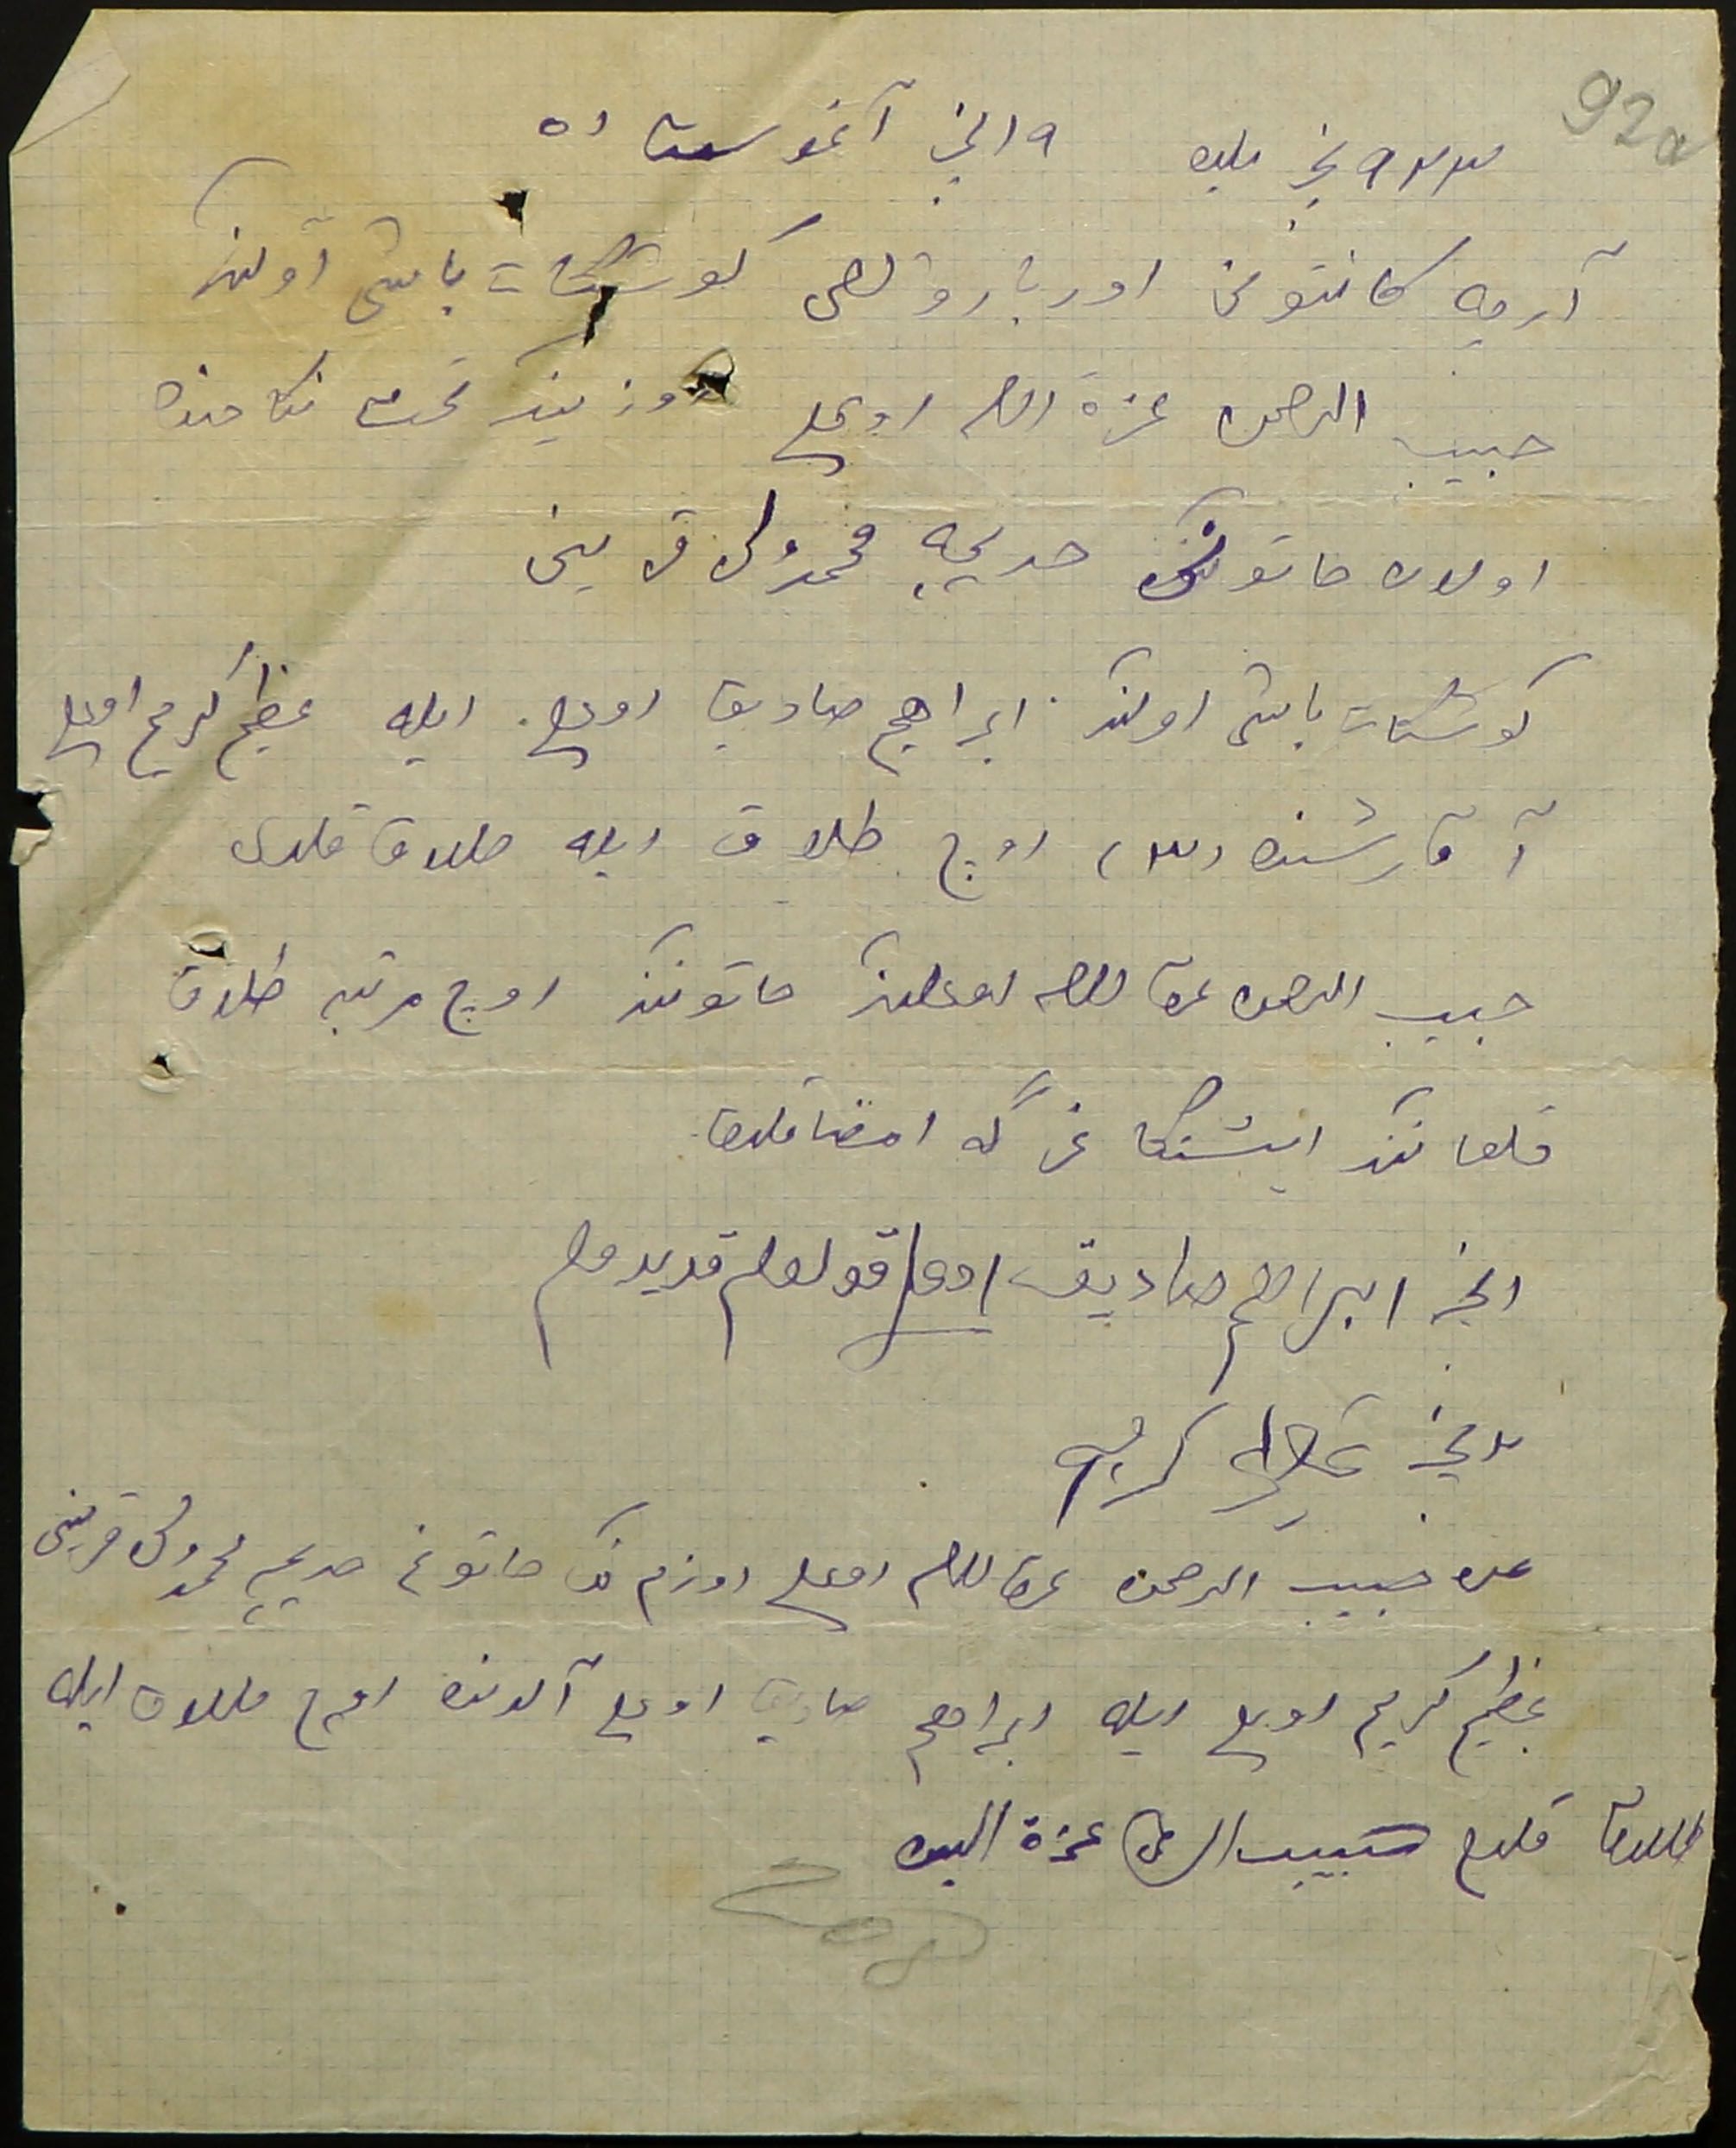 92a
۹۲۳ نچی یلده ۱۹ نچی آغوستا ده
آرچه کانتونی اوربار والصی کوشکات باشی آولنڭ
حبیب الرحمن عزة الله اوغلی اوزینڭ تحت نکاحنده
اولان خاتونن خدیجه محمدولی قزینی
کوشکات باشی اولنڭ ابراهیم صادیق اوغلی ایله عظیم کریم اوغلی
آ قارشنده (۳) اوچ طلاق ایله طلاق قلدی
حبیب الرحمن عزة الله اوغلینڭ خاتوننڭ اوچ مرتبه طلاق
قلغاننڭ ایشتکانمزگه امضا قلدق
ابراهیم صادیق اوغلی قولوم قویدم
عظیم کریم
من حبیب الرحمن عزة الله اوغلی اوزمنڭ خاتونم خدیجه محمدولی قزینی
عظیم کریم اوغلی ایله ابراهیم صادیق اوغلی آلدنده اوچ طلاق ایله
طلاق قلدم حبیب الرحمن عزة الله